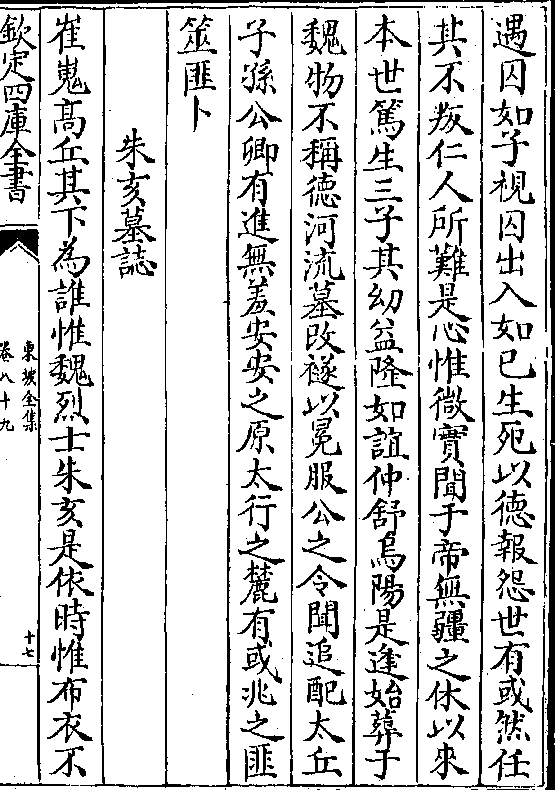 遇囚如子視囚出入如已生死以德報怨世有或然任
其不叛仁人所難是心惟微實聞于帝無疆之休以來
本世篤生三子其幼益隆如誼仲舒烏陽是逢始葬于
魏物不稱德河流墓改襚以冕服公之令聞追配太丘
子孫公卿有進無羞安安之原太行之麓有或兆之匪
筮匪卜
朱亥墓誌
崔嵬髙丘其下為誰惟魏烈士朱亥是依時惟布衣不
欽定四庫全書
東坡全集
卷八十九
十七